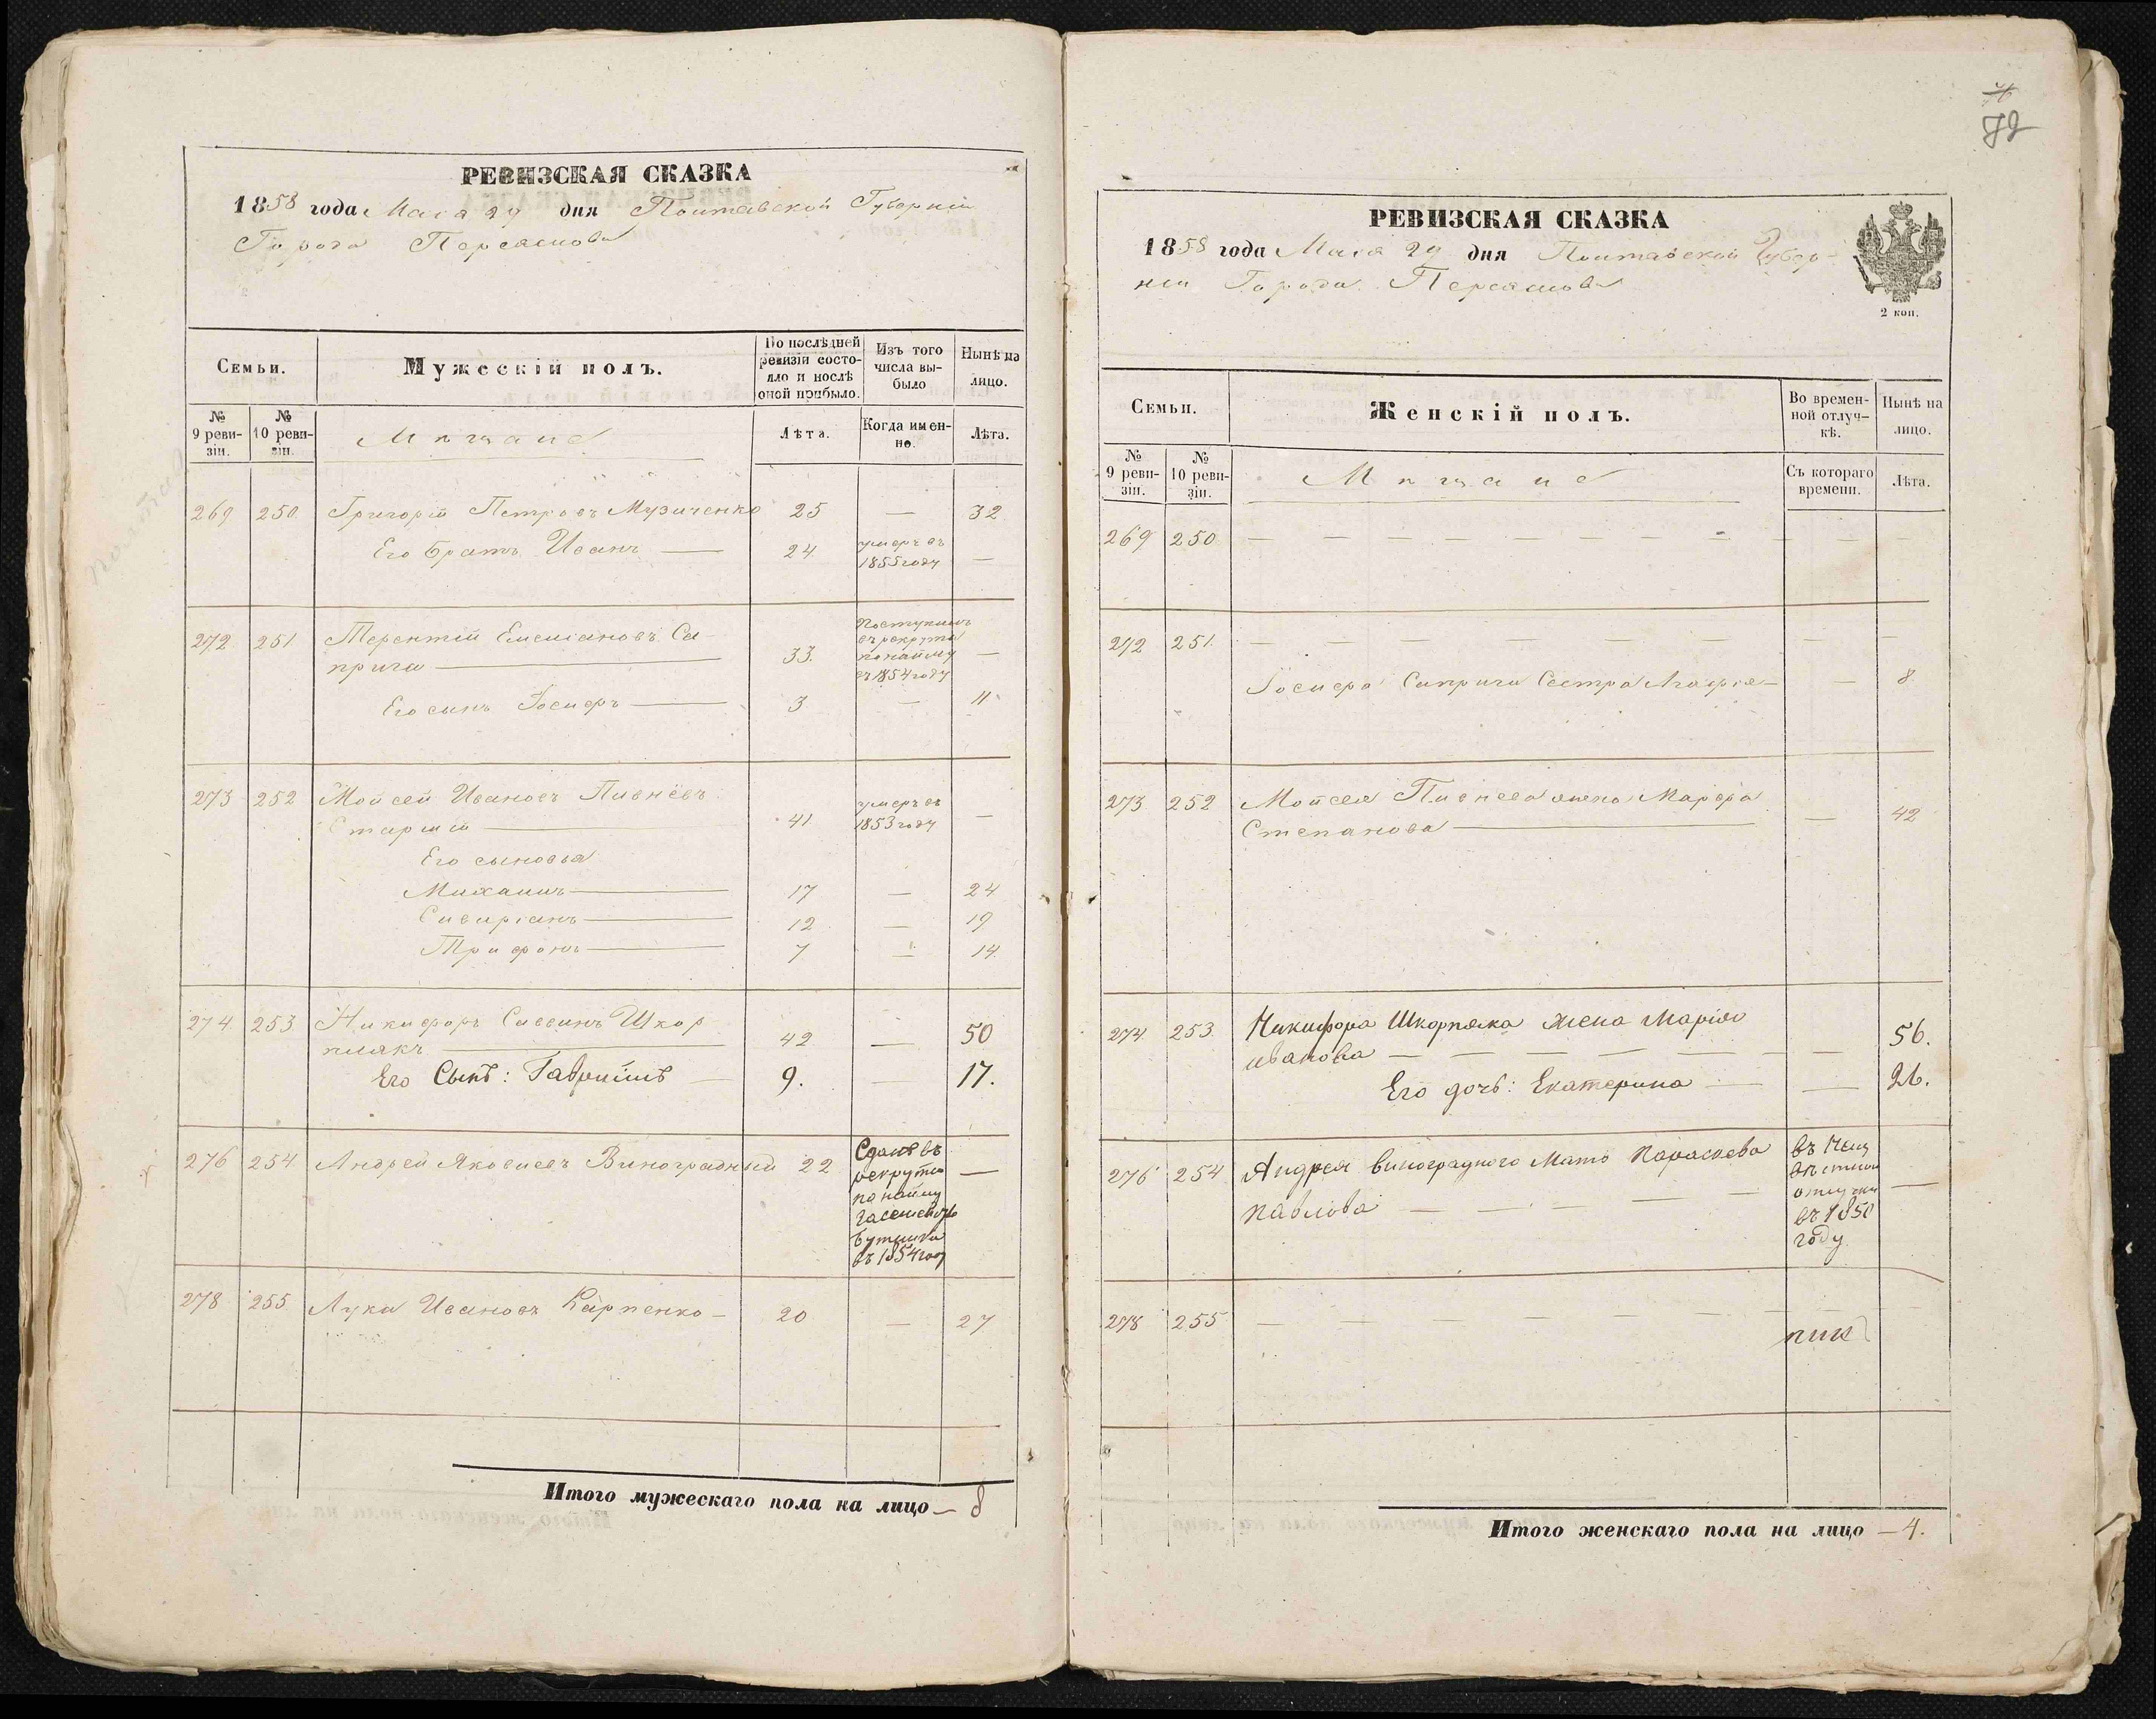 РЕВИЗСКАЯ СКАЗКА
1858 года Мая 29 дня Полтавской Губерніи
Города Переяслова
Семьи.
Мужескій полъ.
По послѣдней
ревизіи состо-
яло и послѣ
оной прибыло.
Изъ того
числа вы-
было
Нынѣ на
лицо.
№
9 реви-
зіи.
№
10 реви-
зіи.
Мѣщане
Лѣта.
Когда имен-
но.
Лѣта.
269 250 Григорій Петровъ Музиченко 25 — 32
Его братъ Иванъ — 24 умеръ въ
1855 году —
272 251 Терентій Емельяновъ Са-
прыга — 33. поступилъ
въ рекруты
по найму
въ 1854 году —
Его сынъ Іосифъ — 3 — 11
273 252 Мойсей Ивановъ Пивнёвъ
Старшій — 41 умеръ въ
1853 году —
Его сыновья
Михаилъ — 17 — 24
Сивиріанъ — 12 — 19
Трифонъ — 7 — 14
274 253 Никифоръ Саввинъ Шкор
плякъ — 42 — 50
Его Сынъ: Гавріилъ — 9. — 17.
276 254 Андрей Яковлевъ Виноградный 22 Сданъ въ
рекруты
по найму
въ 1854 году —
278 255 Лука Ивановъ Карпенко — 20 — 27
Итого мужескаго пола на лицо — 8
72
РЕВИЗСКАЯ СКАЗКА
1858 года Мая 29 дня Полтавской Губер-
ніи Города Переяслова
2 коп.
Семьи.
Женскій полъ.
Во времен-
ной отлуч-
кѣ.
Нынѣ на
лицо.
№
9 реви-
зіи.
№
10 реви-
зіи.
Мѣщане
Съ котораго
времени.
Лѣта.
269 250 — — — — — — — — —
272 251. — — — — — — — —
Іосифа Саприги Сестра Агафія — — 8
273 252 Мойсея Пивнева жена Марфа
Степанова — — 42
274 253 Никифора Шкорпляка жена Марія
иванова — — — — — — 56.
Его дочь: Екатерина — — 26.
276 254 Андрея виноградного Мать Параскева
павлова — — — — —
отлучки
въ 1850
году —
278 255 — — — — — — — —
Итого женскаго пола на лицо — 4.